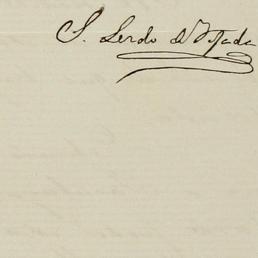 S. Lerdo de Tejada